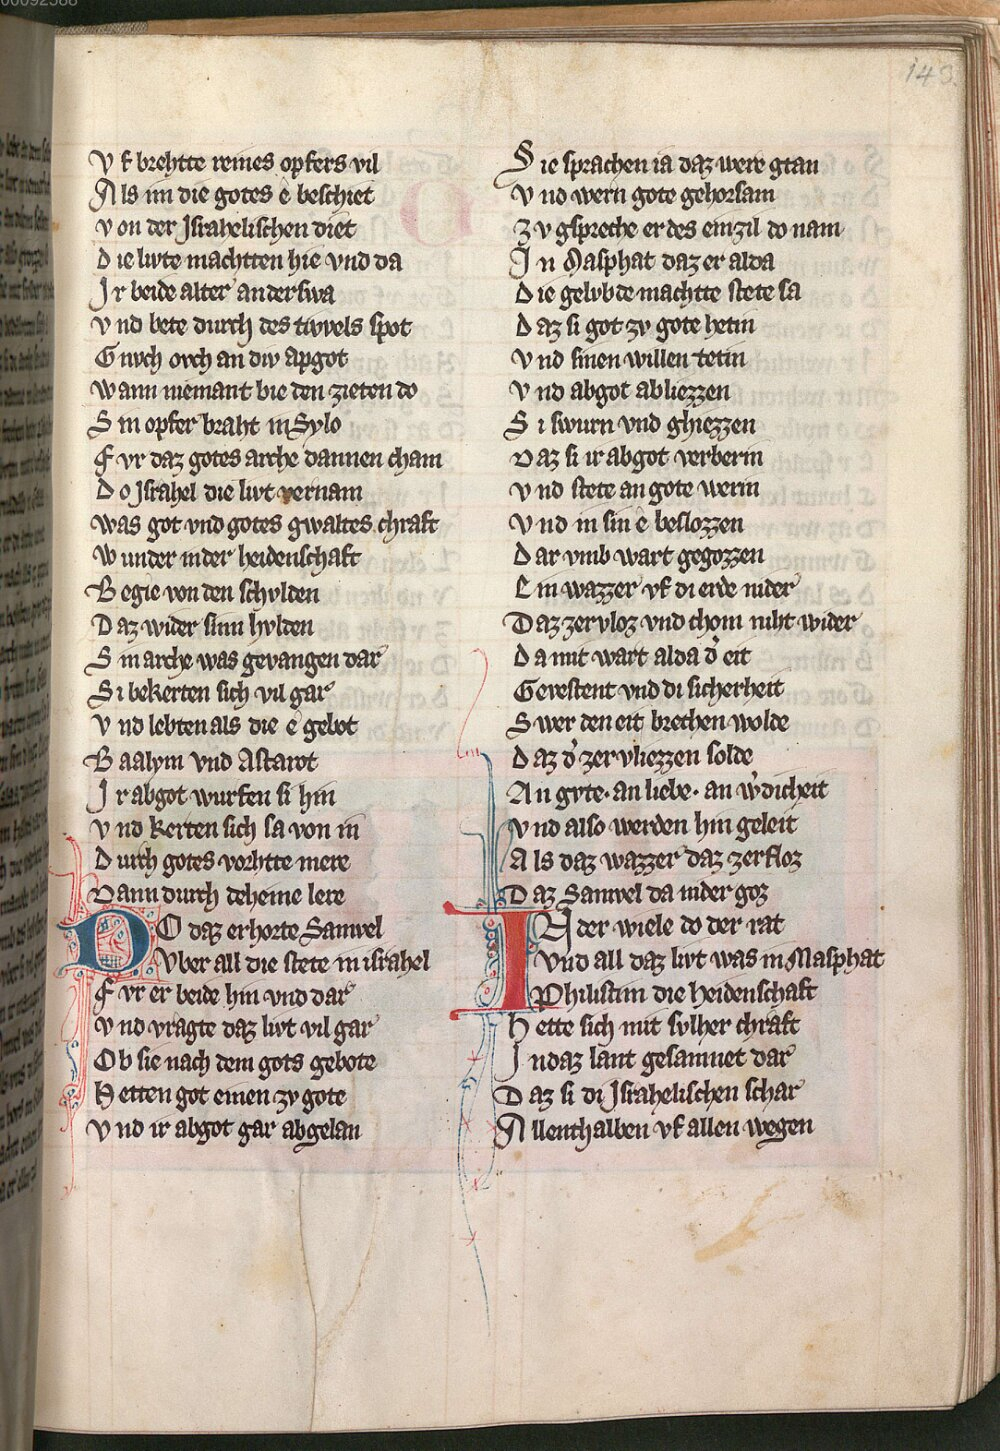 00092588
143
V f brehtte reines opfers vil
Als im die gotes ê beschiet
von der Jsrahelischen diet
Die livte machtten hie vnd da
Jr beide alter anderswa
vnd bete durch des tivvels spot
Gnuch ovch an div apgot
wann niemant bie den zieten do
Sin opfer braht in Sylo
Fvr daz gotes arche dannen cham
Do Jsrahel die livt vernam
was got vnd gotes gwaltes chraft
wunder in der heidenschaft
Begie von den schvlden
Daz wider sinn hvlden
Sin arche was gevangen dar
Si bekerten sich vil gar
vnd lebten als die ê gebot
Baalym vnd Astarot
Jr abgot wurfen si hin
vnd kerten sich sa von in
Durch gotes vorhtte mere
Dann durch deheine lere
DO daz erhorte Samvel
Vber all die stete in israhel
Fvr er beide hin vnd dar
vnd vragte daz livt vil gar
Ob sie nach dem gots gebote
Hetten got einen zv gote
vnd ir abgot gar abgelan
Sie sprachen ia daz were gtan
vnd wern gote gehorsam
Zv gspreche er des ein zil do nam
Jn Masphat daz er alda
Die gelvbde machtte stete sa
Daz si got zv gote hetin
vnd sinen willen tetin
vnd abgot abliezzen
Si swurn vnd ghiezzen
Daz si ir abgot verberin
vnd stete an gote werin
vnd in sin ê beslozzen
Dar vmb wart gegozzen
Ein wazzer vf di erde nider
Daz zervloz vnd chom niht wider
Da mit wart alda d̕ eit
Gevestent vnd di sicherheit
Swer den eit brechen wolde
Daz d̕ zervliezzen solde
An gvte· an liebe· an w̕dicheit
vnd also werden hin geleit
Als daz wazzer daz zerfloz
Daz Samvel da nider goz
IN der wiele do der rat
vnd all daz livt was in Masphat
Philistim die heidenschaft
Hette sich mit svlher chraft
Jn daz lant gesamnet dar
Daz si di Jsrahelischen schar
Allenthalben vf allen wegen